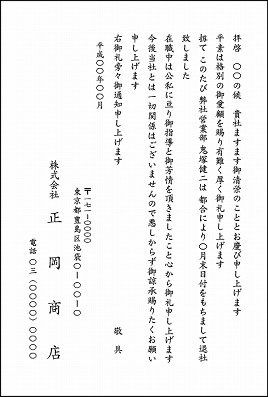 拝啓　〇〇の候　貴社ますます御清栄のこととお慶び申し上げます
平素は格別の御愛顧を賜り有難く厚く御礼申し上げます
扨て このたび 弊社営業部 鬼塚健二は 都合により〇月末日付をもちまして退社
致しました
在職中は公私に亘り御指導と御芳情を頂きましたこと心から御礼申し上げます
今後当社とは一切関係はございませんので悪しからず御諒承賜りたくお願い
申し上げます
右御礼旁々御通知申し上げます
敬具
平成〇〇年〇〇月
〒一七一-〇〇〇〇
東京都豊島区池袋〇-〇〇-〇
株式会社　正岡商店
電話 〇三 (〇〇〇〇) 〇〇〇〇